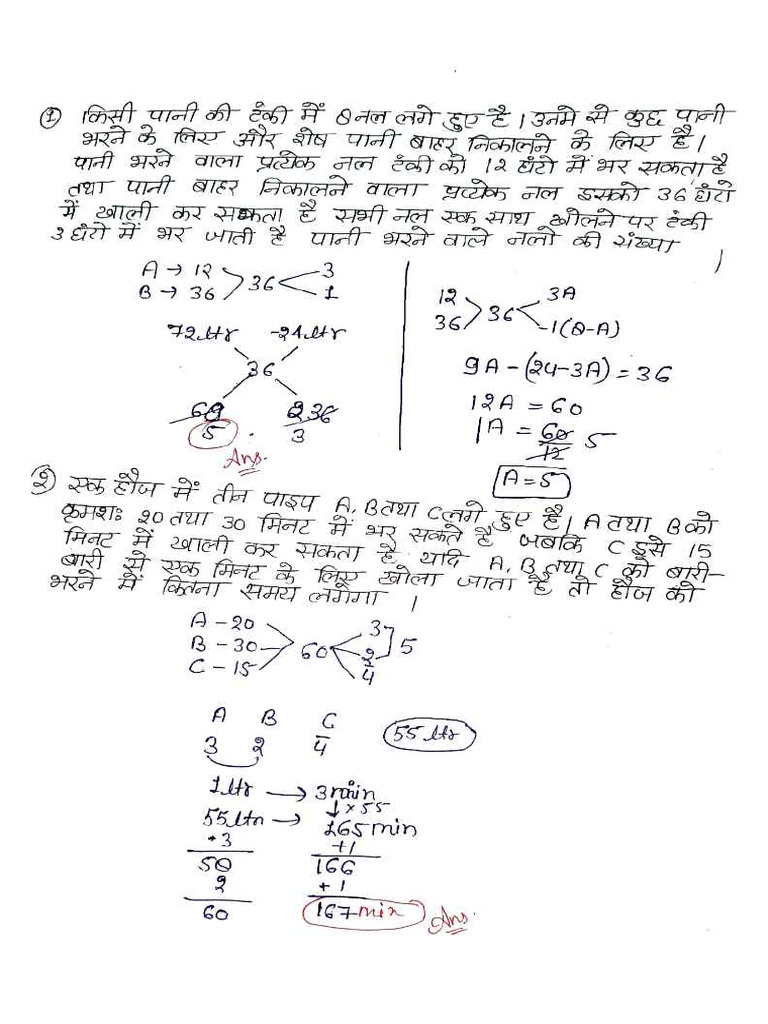 ① किसी पानी की टंकी में 8 नल लगे हुए है। उनमे से कुछ पानी
भरने के लिए और शेष पानी बाहर निकालने के लिए है।
पानी भरने वाला प्रत्येक नल टंकी को 12 घंटो में भर सकता है
तथा पानी बाहर निकालने वाला प्रत्येक नल इसको 36 घंटो
में खाली कर सकता है सभी नल एक साथ खोलने पर टंकी
3 घंटो में भर जाती है पानी भरने वाले नलो की संख्या ।
A → 12
B → 36
36
3
1
72 ltr -24 ltr
36
60 36
5 3
Ans.
12
36
36
3A
-1(8-A)
9A-(24-3A) = 36
12A = 60
1A = 60/12 5
A=5
② एक हौज में तीन पाइप A, B तथा C लगे हुए है। A तथा B को
क्रमशः 20 तथा 30 मिनट में भर सकते है जबकि C इसे 15
मिनट में खाली कर सकता है यदि A, B तथा C को बारी-
बारी से एक मिनट के लिए खोला जाता है तो हौज को
भरने में कितना समय लगेगा ।
A - 20
B - 30
C - 15
60
3
2
4
5
A B C
3 2 4
55 ltr
1 ltr → 3 min
↓ × 55
55 ltr → 165 min
+3 +1
58 166
2 +1
60 167 min Ans.